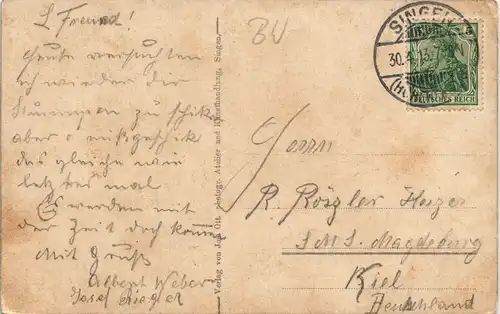 L Freund!
Heute versuchten
wir wieder die
zu schik
aber o mißgeschik
das gleiche wie
letztes mal
Es werden mit
der Zeit doch kommen
Mit Gruß
Albert Weber
Josef Rieger
BW
Verlag von Jos. Ott, Photogr. Atelier und Kunsthandlung, Singen.
SINGEN
30.4.13.
DEUTSCHES REICH
Herrn
R. Rözgler Heizer
S.M.S. Magdeburg
Kiel
Deutschland